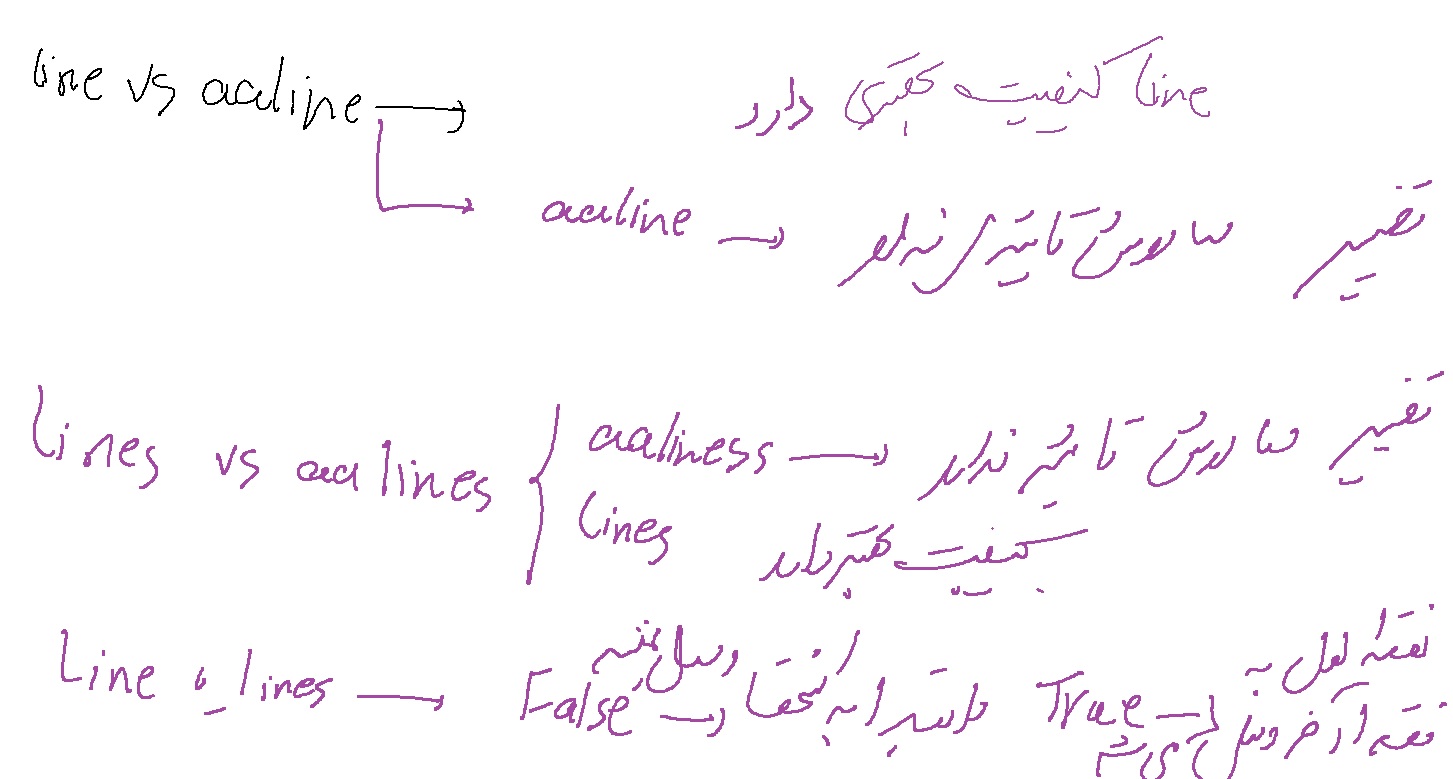 line vs aaline → line کیفیت بهتری دارد
aaline → تغییر سایزش تاثیری ندارد
lines vs aalines { aaliness → تغییر سایزش تاثیر ندارد
lines کیفیت بهتر دارد
Line و lines → False → وصل نمیشه
True → نقطه اول به نقطه آخر وصل می شه